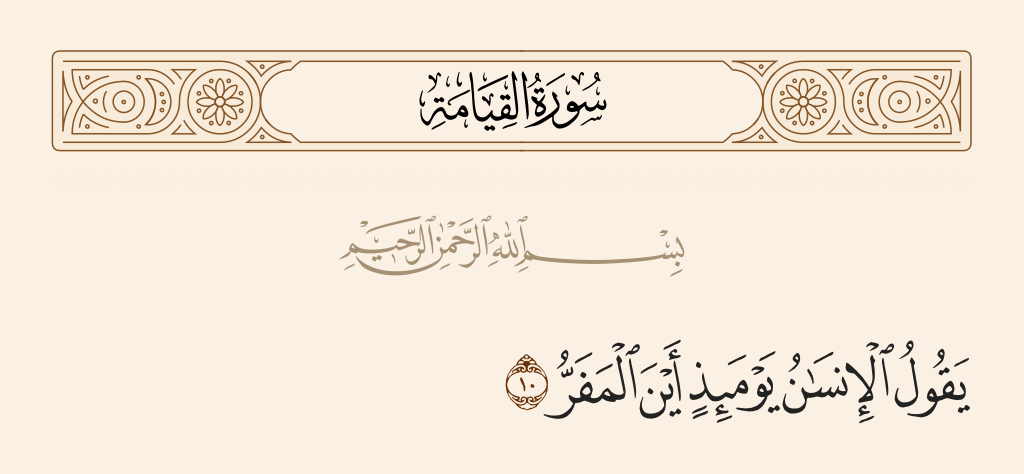 سُورَةُ القِيَامَةِ
بِسْمِ ٱللَّهِ ٱلرَّحْمَٰنِ ٱلرَّحِيمِ
يَقُولُ ٱلْإِنسَٰنُ يَوْمَئِذٍ أَيْنَ ٱلْمَفَرُّ ١٠